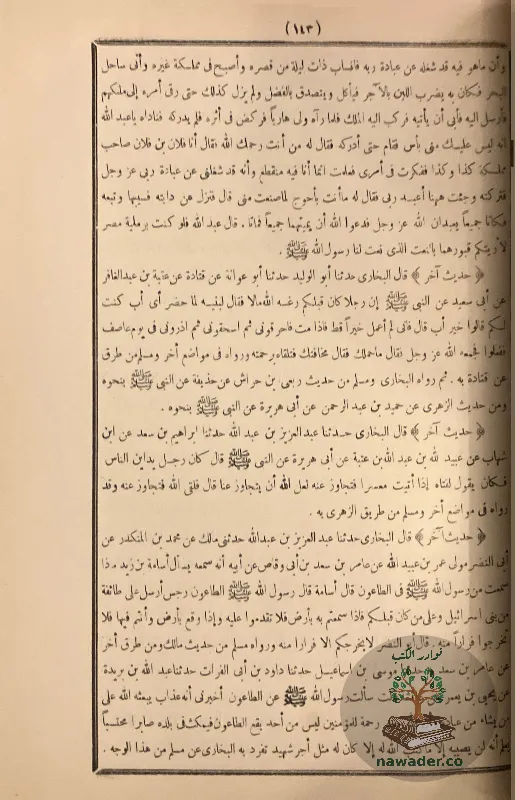 (١٤٣)
وأن ماهو فيه قد شغله عن عبادة ربه فانساب ذات ليلة من قصره وأصبح فى مملكة غيره وأتى ساحل
البحر فكان به يضرب اللبن بالآجر فيأكل ويتصدق بالفضل ولم يزل كذلك حتى رقى أمره إلى ملكهم
فأرسل اليه فأبى أن يأتيه فركب اليه الملك فلما رآه ولى هاربا فركض فى أثره فلم يدركه فناداه ياعبد الله
انه ليس عليك منى بأس فقام حتى أدركه فقال له من أنت رحمك الله فقال أنا فلان بن فلان صاحب
مملكة كذا وكذا ففكرت فى أمرى فعلمت انما أنا فيه منقطع وأنه قد شغلنى عن عبادة ربى عز وجل
فتركته وجئت ههنا أعبد ربى فقال له ماأنت بأحوج لماصنعت منى قال فنزل عن دابته فسيبها وتبعه
فكانا جميعا يعبدان الله عز وجل فدعوا الله أن يميتهما جميعا فماتا . قال عبد الله فلو كنت برملية مصر
لأريتكم قبورهما بالنعت الذى نعت لنا رسول الله ﷺ .
﴿ حديث آخر ﴾ قال البخارى حدثنا أبو الوليد حدثنا أبو عوانة عن قتادة عن عقبة بن عبدالغافر
عن أبى سعيد عن النبى ﷺ إن رجلا كان قبلكم رغسه الله مالا فقال لبنيه لما حضر أى أب كنت
لكم قالوا خير أب قال فانى لم أعمل خيراً قط فاذا مت فاحرقونى ثم اسحقونى ثم اذرونى فى يوم عاصف
ففعلوا فجمعه الله عز وجل فقال ماحملك فقال مخافتك فتلقاه برحمته ورواه فى مواضع أخر ومسلم من طرق
عن قتادة به . ثم رواه البخارى ومسلم من حديث ربعى بن حراش عن حذيفة عن النبى ﷺ بنحوه
ومن حديث الزهرى عن حميد بن عبد الرحمن عن أبى هريرة عن النبى ﷺ بنحوه .
﴿ حديث آخر ﴾ قال البخارى حدثنا عبد العزيز بن عبد الله حدثنا ابراهيم بن سعد عن ابن
شهاب عن عبيد لله بن عبد الله بن عتبة عن أبى هريرة عن النبى ﷺ قال كان رجل يداين الناس
فكان يقول لفتاه إذا أتيت معسرا فتجاوز عنه لعل الله أن يتجاوز عنا قال فلقى الله فتجاوز عنه وقد
رواه فى مواضع أخر ومسلم من طريق الزهرى به .
﴿ حديث آخر ﴾ قال البخارى حدثنا عبد العزيز بن عبدالله حدثنى مالك عن محمد بن المنكدر عن
أبى النضر مولى عمر بن عبيد الله عن عامر بن سعد بن أبى وقاص عن أبيه أنه سمعه يسأل أسامة بن زيد ماذا
سمعت من رسول الله ﷺ فى الطاعون قال أسامة قال رسول الله ﷺ الطاعون رجس أرسل على طائفة
من بنى اسرائيل وعلى من كان قبلكم فاذا سمعتم به بأرض فلا تقدموا عليه وإذا وقع بأرض وأنتم فيها فلا
تخرجوا فراراً منه . قال أبو النضر لايخرجكم الا فرارا منه ورواه مسلم من حديث مالك ومن طرق أخر
عن عامر بن سعد موسى بن اسماعيل حدثنا داود بن أبى الفرات حدثنا عبد الله بن بريدة
عن يحيى بن يعمر قالت سألت رسول الله ﷺ عن الطاعون أخبرنى أنه عذاب يبعثه الله على
من يشاء من عباده رحمة للمؤمنين ليس من أحد يقع الطاعون فيمكث فى بلده صابرا محتسباً
يعلم أنه لن يصيبه إلا ما كتب الله له إلا كان له مثل أجر شهيد تفرد به البخارى عن مسلم من هذا الوجه .
نوادر الكتب
nawader.co